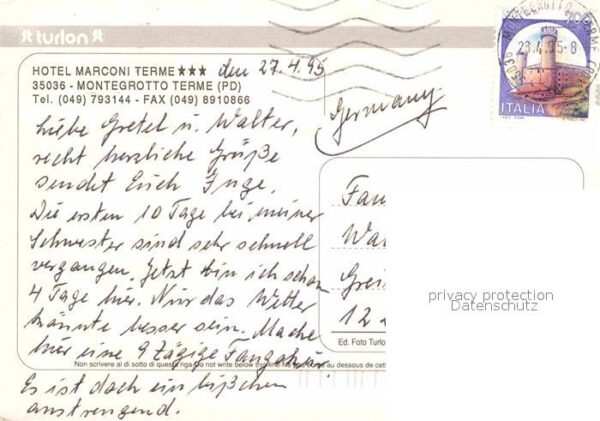 turlon
HOTEL MARCONI TERME ★★★ den 27.4.95
35036 - MONTEGROTTO TERME (PD)
Tel. (049) 793144 - FAX (049) 8910866
Germany
Liebe Gretel u. Walter,
recht herzliche Grüße
sendet Euch Inge.
Die ersten 10 Tage bei meiner
Schwester sind sehr schnell
vergangen. Jetzt bin ich schon
4 Tage hier. Nur das Wetter
könnte besser sein. Mache
hier eine 9 tägige Fangokur.
Es ist doch ein bißchen
anstrengend.
Non scrivere al di sotto di questa riga
au dessous de cett
Fam
Wa
12
Ed. Foto Turlo
35036 MONTEGROTTO TERME
28.4.95-8
ITALIA
privacy protection
Datenschutz